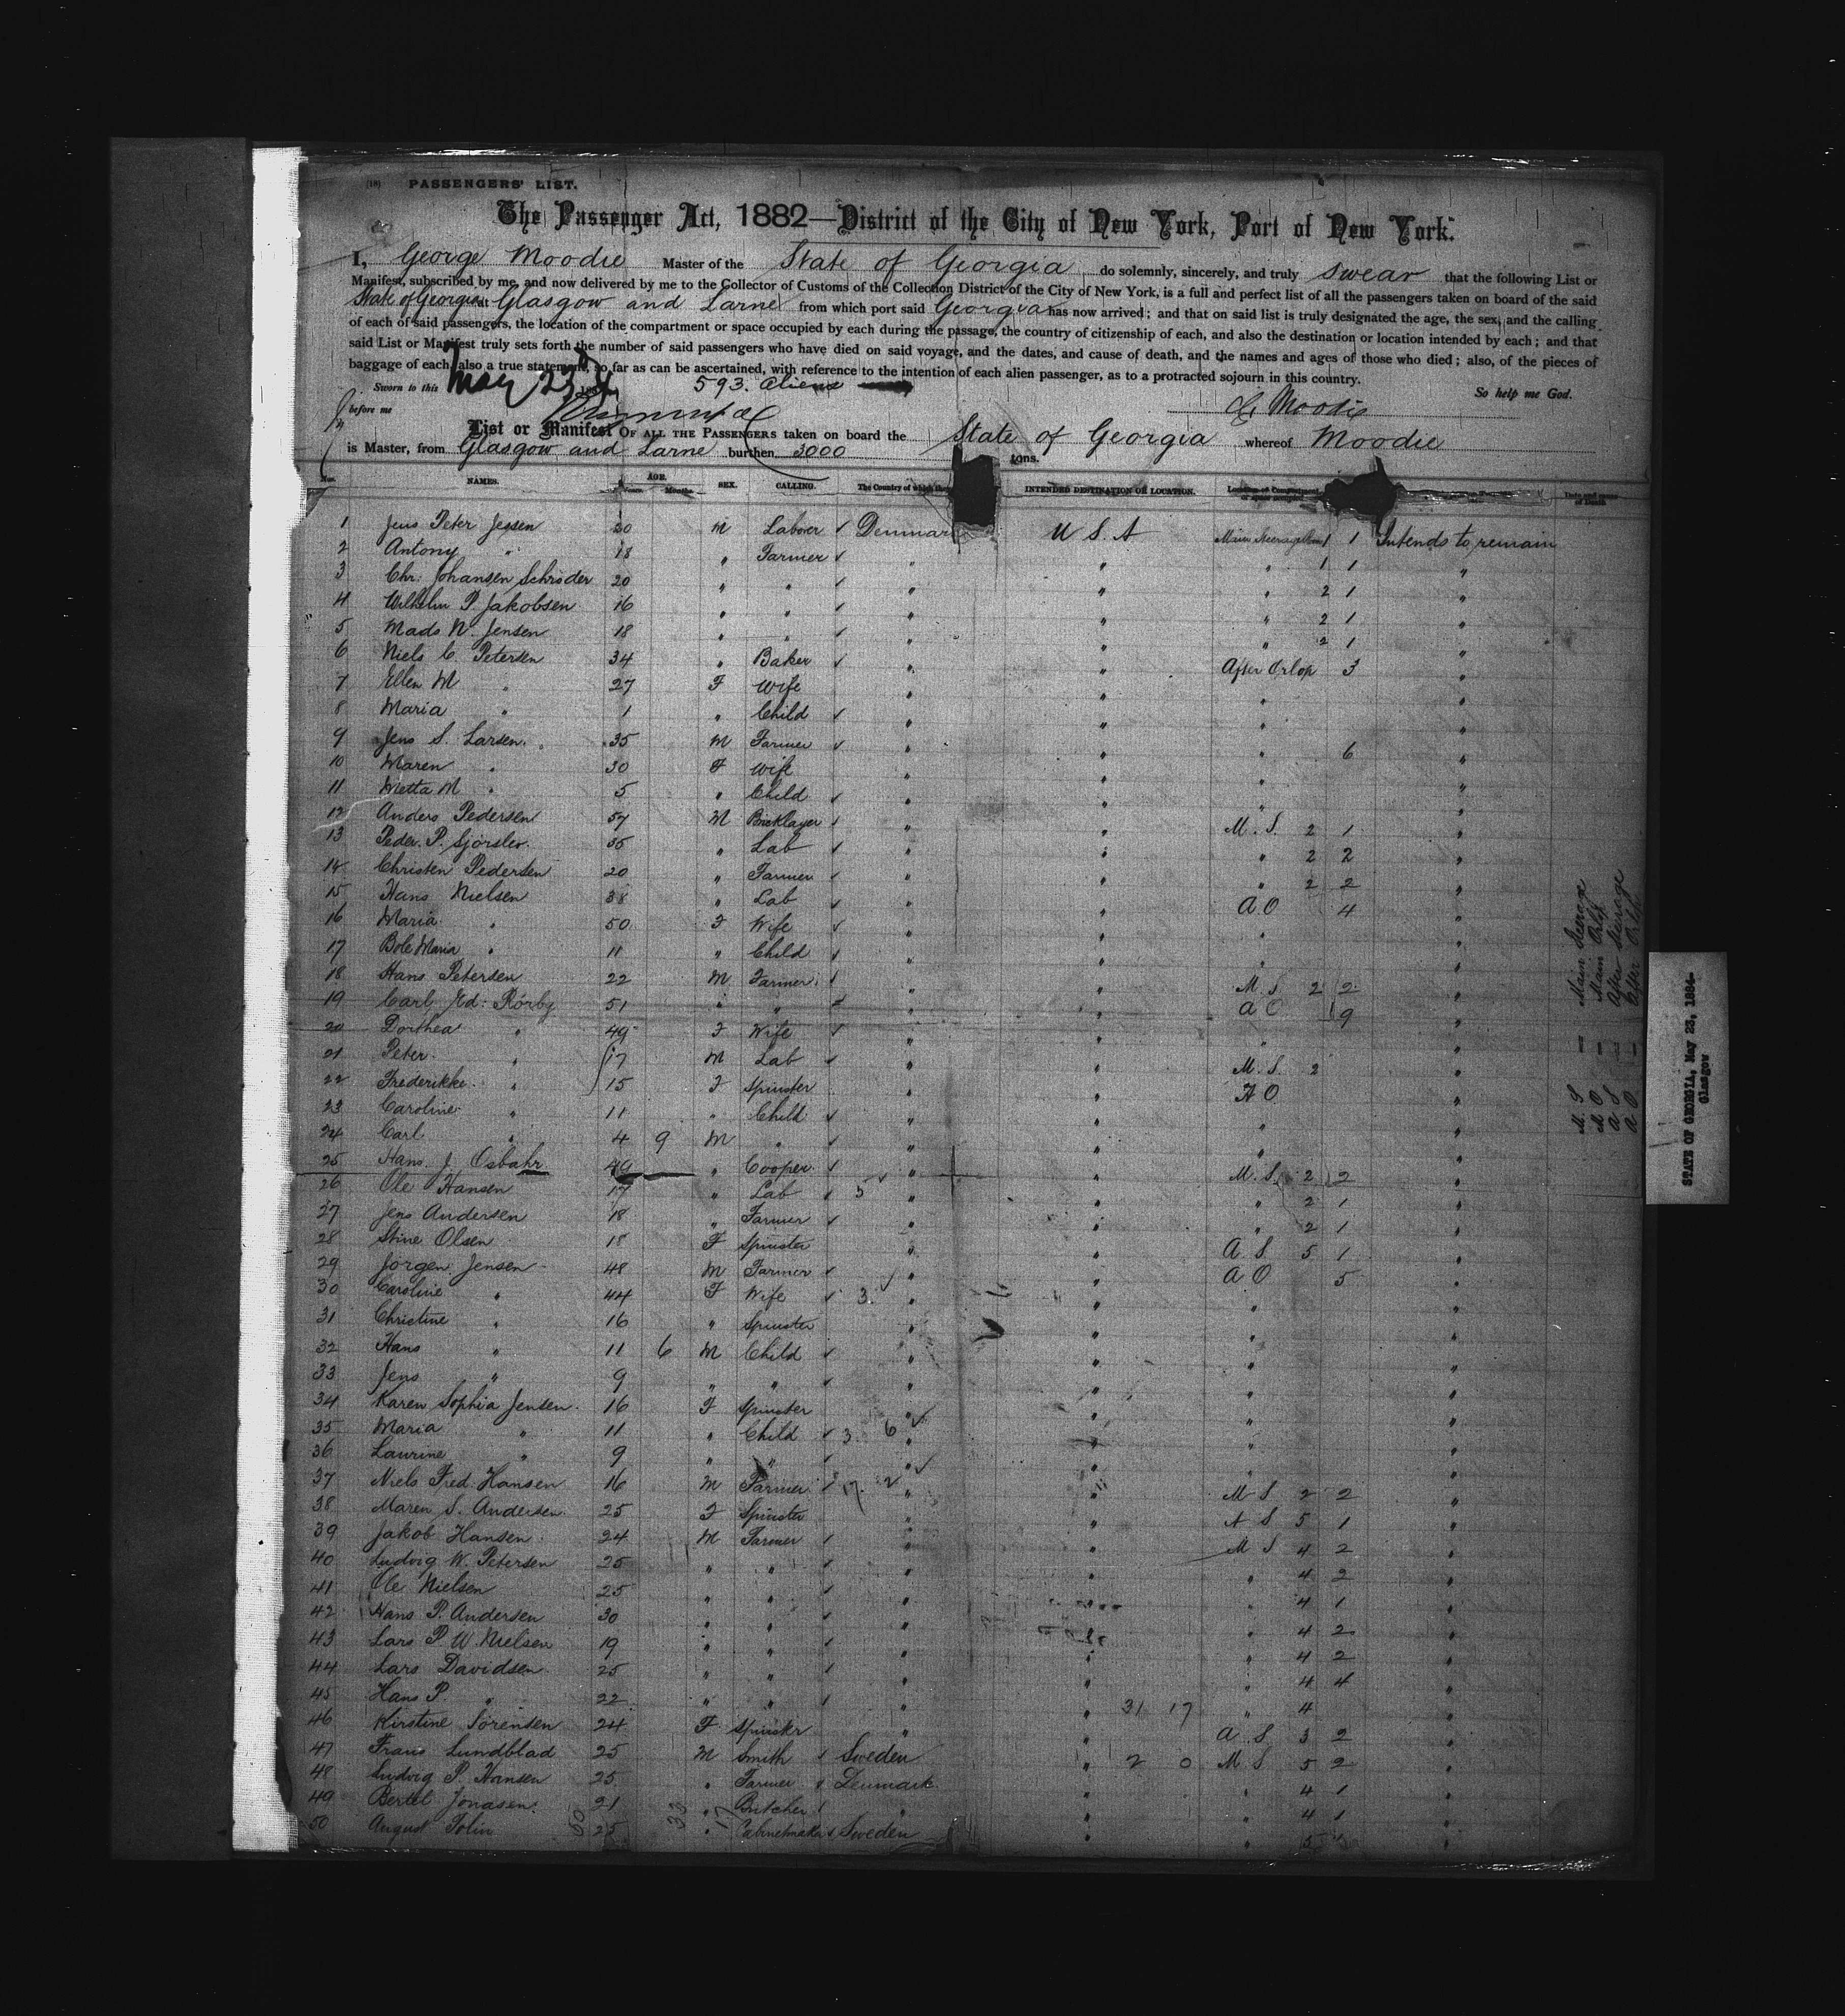 (18) PASSENGERS' LIST.
The Passenger Act, 1882—District of the City of New York, Port of New York.
I, George Moodie Master of the State of Georgia do solemnly, sincerely, and truly swear that the following List or
Manifest, subscribed by me, and now delivered by me to the Collector of Customs of the Collection District of the City of New York, is a full and perfect list of all the passengers taken on board of the said
State of Georgia at Glasgow and Larne from which port said Georgia has now arrived; and that on said list is truly designated the age, the sex, and the calling
of each of said passengers, the location of the compartment or space occupied by each during the passage, the country of citizenship of each, and also the destination or location intended by each; and that
said List or Manifest truly sets forth the number of said passengers who have died on said voyage, and the dates, and cause of death, and the names and ages of those who died; also, of the pieces of
baggage of each, also a true statement, so far as can be ascertained, with reference to the intention of each alien passenger, as to a protracted sojourn in this country.
Sworn to this May 23 1884 593. aliens So help me God.
before me G Moodie
List or Manifest OF ALL THE PASSENGERS taken on board the State of Georgia whereof Moodie
is Master, from Glasgow and Larne burthen 3000 tons.
Nos. NAMES. AGE. Years. Months. SEX. CALLING. The Country of which they INTENDED DESTINATION OR LOCATION. Location of Compartment or space occupied Date and cause of Death
1 Jens Peter Jessen 20 M Labour Denmark U S A Main Steerage 1 1 Intends to remain
2 Antony " 18 " Farmer " " " 1 1 "
3 Chr. Johansen Schroder 20 " " " " " 2 1 "
4 Wilhelm P. Jakobsen 16 " " " " " 2 1 "
5 Mads N. Jensen 18 " " " " " 2 1 "
6 Niels C. Petersen 34 " Baker " " After Orlop 3 "
7 Ellen M " 27 F Wife " " " "
8 Maria " 1 " Child " " " "
9 Jens S. Larsen 35 M Farmer " " " 6 "
10 Maren " 30 F Wife " " " "
11 Metta M " 5 " Child " " " "
12 Anders Pedersen 57 M Bricklayer " " M. S. 2 1 "
13 Peder. P. Sjorslev 35 " Lab " " " 2 2 "
14 Christen Pedersen 20 " Farmer " " " 2 2 "
15 Hans Nielsen 38 " Lab " " A O 4 "
16 Maria " 50 F Wife " " " "
17 Bole Maria " 11 " Child " " " "
18 Hans Petersen 22 M Farmer " " M. S 2 2 "
19 Carl Ed: Rörby 51 " " " " A O 9 "
20 Dorthea " 49 F Wife " " " "
21 Peter " 17 M Lab " " M. S. 2 "
22 Frederikke " 15 F Spinster " " A O "
23 Caroline " 11 " Child " " " "
24 Carl " 4 9 M " " " " "
25 Hans J. Osbahr 49 " Cooper " " M. S. 2 2 "
26 Ole Hansen 17 " Lab 5 " " " 2 1 "
27 Jens Andersen 18 " Farmer " " " 2 1 "
28 Stine Olsen 18 F Spinster " " A S 5 1 "
29 Jorgen Jensen 48 M Farmer " " A O 5 "
30 Caroline " 44 F Wife 3 " " " "
31 Christine " 16 " Spinster " " " "
32 Hans " 11 6 M Child " " " "
33 Jens " 9 " " " " " "
34 Karen Sophia Jensen 16 F Spinster " " " "
35 Maria " 11 " Child 3 6 " " " "
36 Laurine " 9 " " " " " "
37 Niels Fred Hansen 16 M Farmer 17 2 " " M S 2 2 "
38 Maren S. Andersen 25 F Spinster " " A S 5 1 "
39 Jakob Hansen 24 M Farmer " " M S 4 2 "
40 Ludvig W. Petersen 25 " " " " " 4 2 "
41 Ole Nielsen 25 " " " " " 4 1 "
42 Hans P. Andersen 30 " " " " " 4 2 "
43 Lars P W. Nielsen 19 " " " " " 4 2 "
44 Lars Davidsen 25 " " " " " 4 4 "
45 Hans P. " 22 " " " " 31 17 " 4 "
46 Kirstine Sorensen 24 F Spinster " " A S 3 2 "
47 Frans Lundblad 25 M Smith Sweden " 2 0 M S 5 2 "
48 Ludvig P. Hansen 25 " Farmer Denmark " " 4 1 "
49 Bertel Jonasen 21 " Butcher " " " 4 1 "
50 August Tolin 25 " Cabinetmaker Sweden " " 5 "
50 33 17
M S — Main Steerage
M O — Main Orlop
A S — After Steerage
A O — After Orlop
STATE OF GEORGIA, May 23, 1884
Glasgow